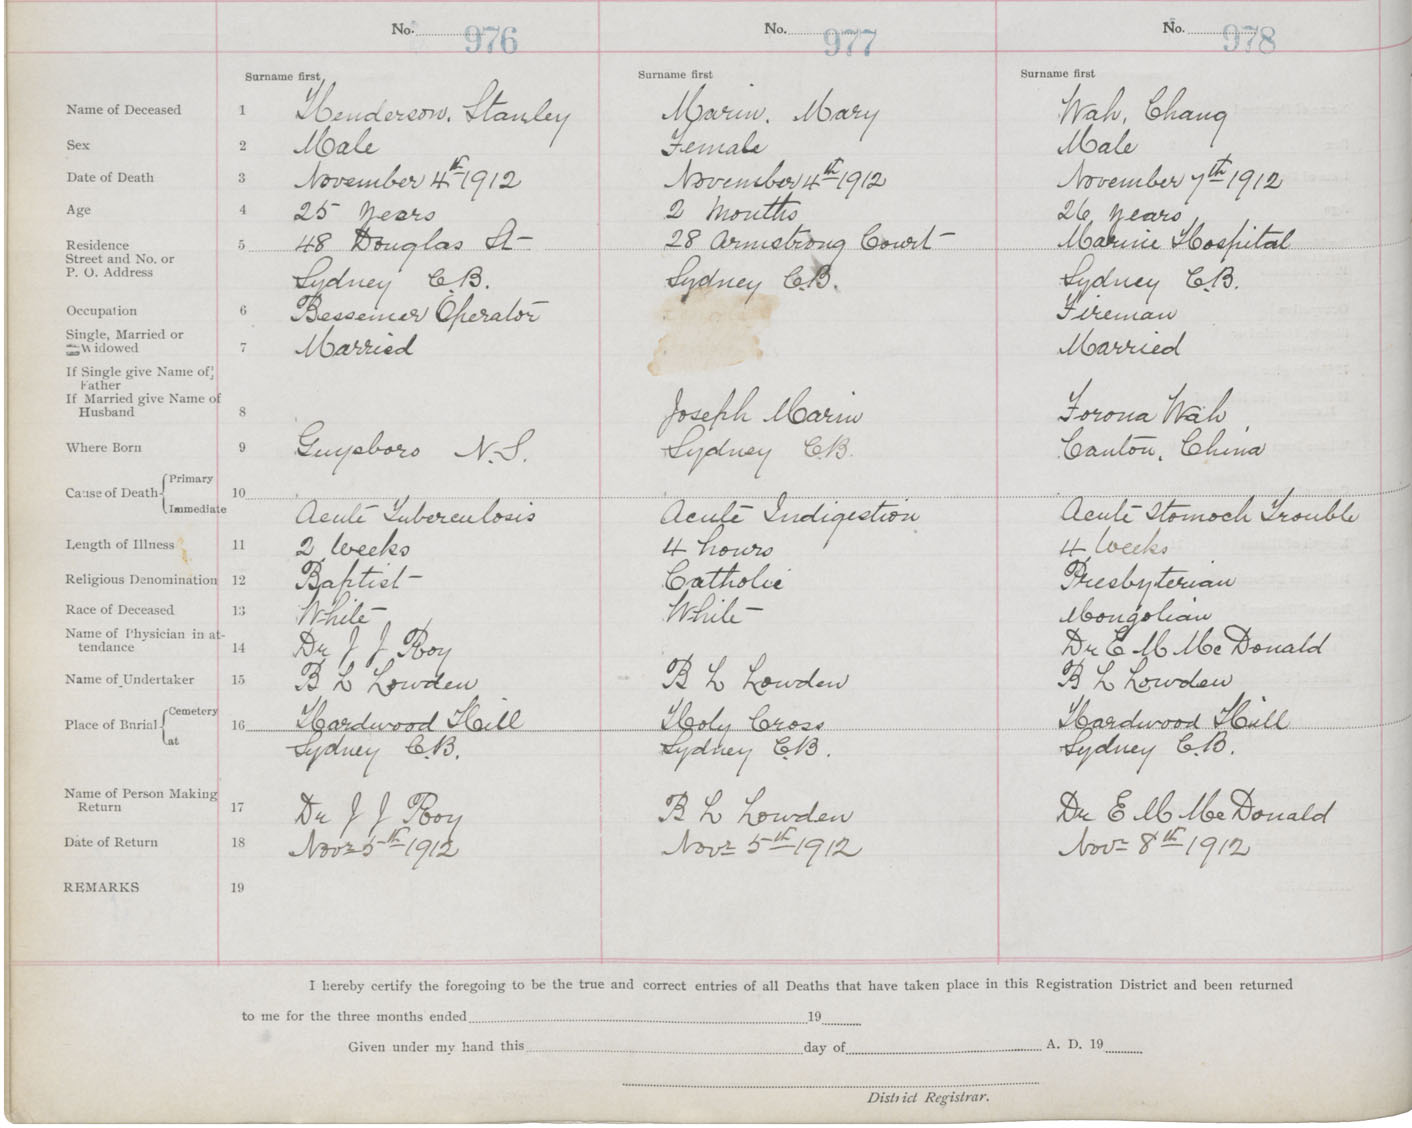 No. 976 No. 977 No. 978
Surname first Surname first Surname first
Name of Deceased 1 Henderson, Stanley Marin, Mary Wah, Chang
Sex 2 Male Female Male
Date of Death 3 November 4th 1912 November 4th 1912 November 7th 1912
Age 4 25 years 2 months 26 years
Residence 5 48 Douglas St 28 Armstrong Court Marine Hospital
Street and No. or
P. O. Address Sydney C.B. Sydney C.B. Sydney C.B.
Occupation 6 Bessemer Operator Fireman
Single, Married or
Widowed 7 Married Married
If Single give Name of
Father
If Married give Name of
Husband 8 Joseph Marin Forona Wah
Where Born 9 Guysboro N.S. Sydney C.B. Canton, China
Cause of Death Primary 10
Immediate Acute Tuberculosis Acute Indigestion Acute Stomoch Trouble
Length of Illness 11 2 weeks 4 hours 4 weeks
Religious Denomination 12 Baptist Catholic Presbyterian
Race of Deceased 13 White White Mongolian
Name of Physician in at-
tendance 14 Dr J J Roy Dr E M McDonald
Name of Undertaker 15 B L Lowden B L Lowden B L Lowden
Place of Burial Cemetery 16 Hardwood Hill Holy Cross Hardwood Hill
at Sydney C.B. Sydney C.B. Sydney C.B.
Name of Person Making
Return 17 Dr J J Roy B L Lowden Dr E M McDonald
Date of Return 18 Novr 5th 1912 Novr 5th 1912 Novr 8th 1912
REMARKS 19
I hereby certify the foregoing to be the true and correct entries of all Deaths that have taken place in this Registration District and been returned
to me for the three months ended 19
Given under my hand this day of A. D. 19
District Registrar.